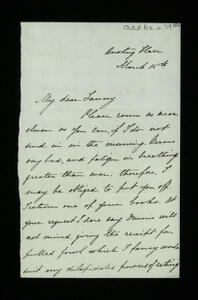 Anstey Place
March 15th
My dear Fanny
Please come as near
eleven as you can, if I do not
send in in the morning. Throat
very bad, and fatigue in breathing
greater than ever, therefore, I
may be obliged to put you off
I return one of your books. At
your request I dare say Innis will
not mind giving the receipt for
pulled fowl which I fancy would
suit my dilapidated powers of eating